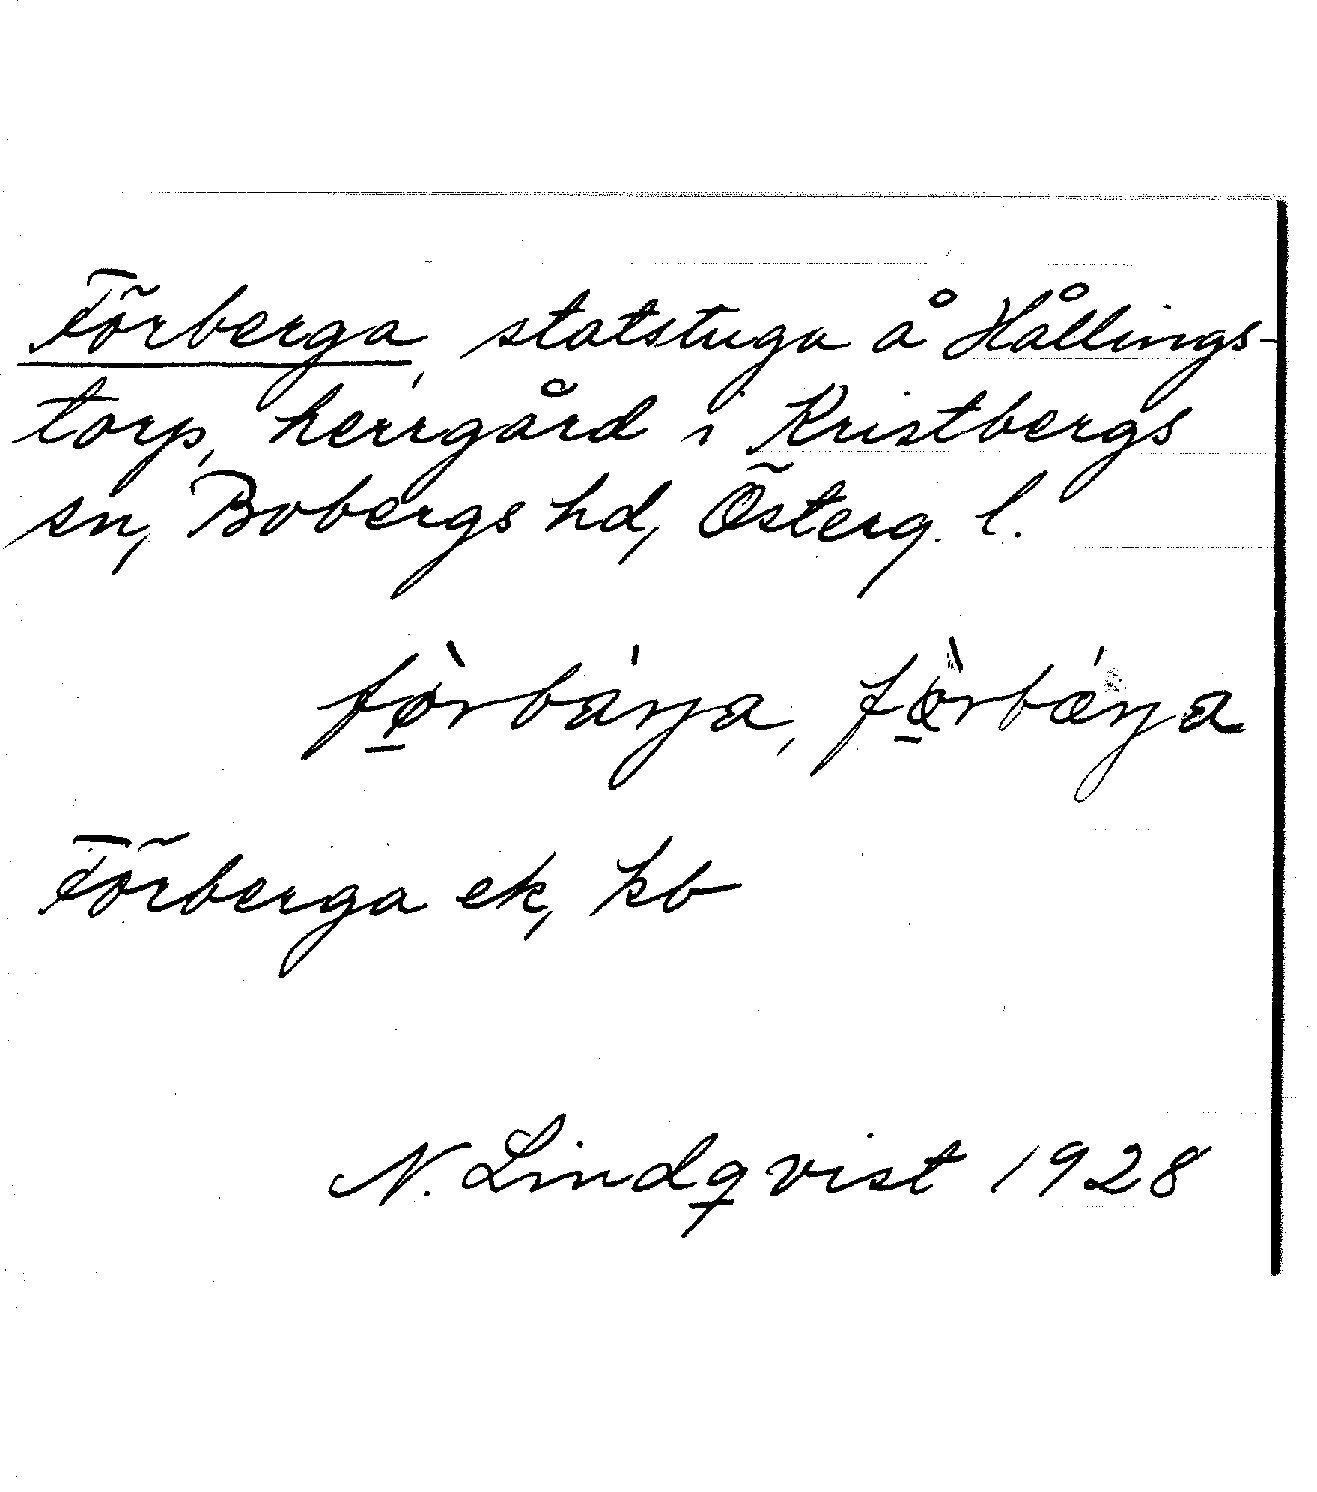 Förberga, statstuga å Hållings-
torp, herrgård i Kristbergs
sn, Bobergs hd, Österg. l.
fø̱̀rbárja, fø̱̀rbǽrja
Förberga ek, kb
N. Lindqvist 1928